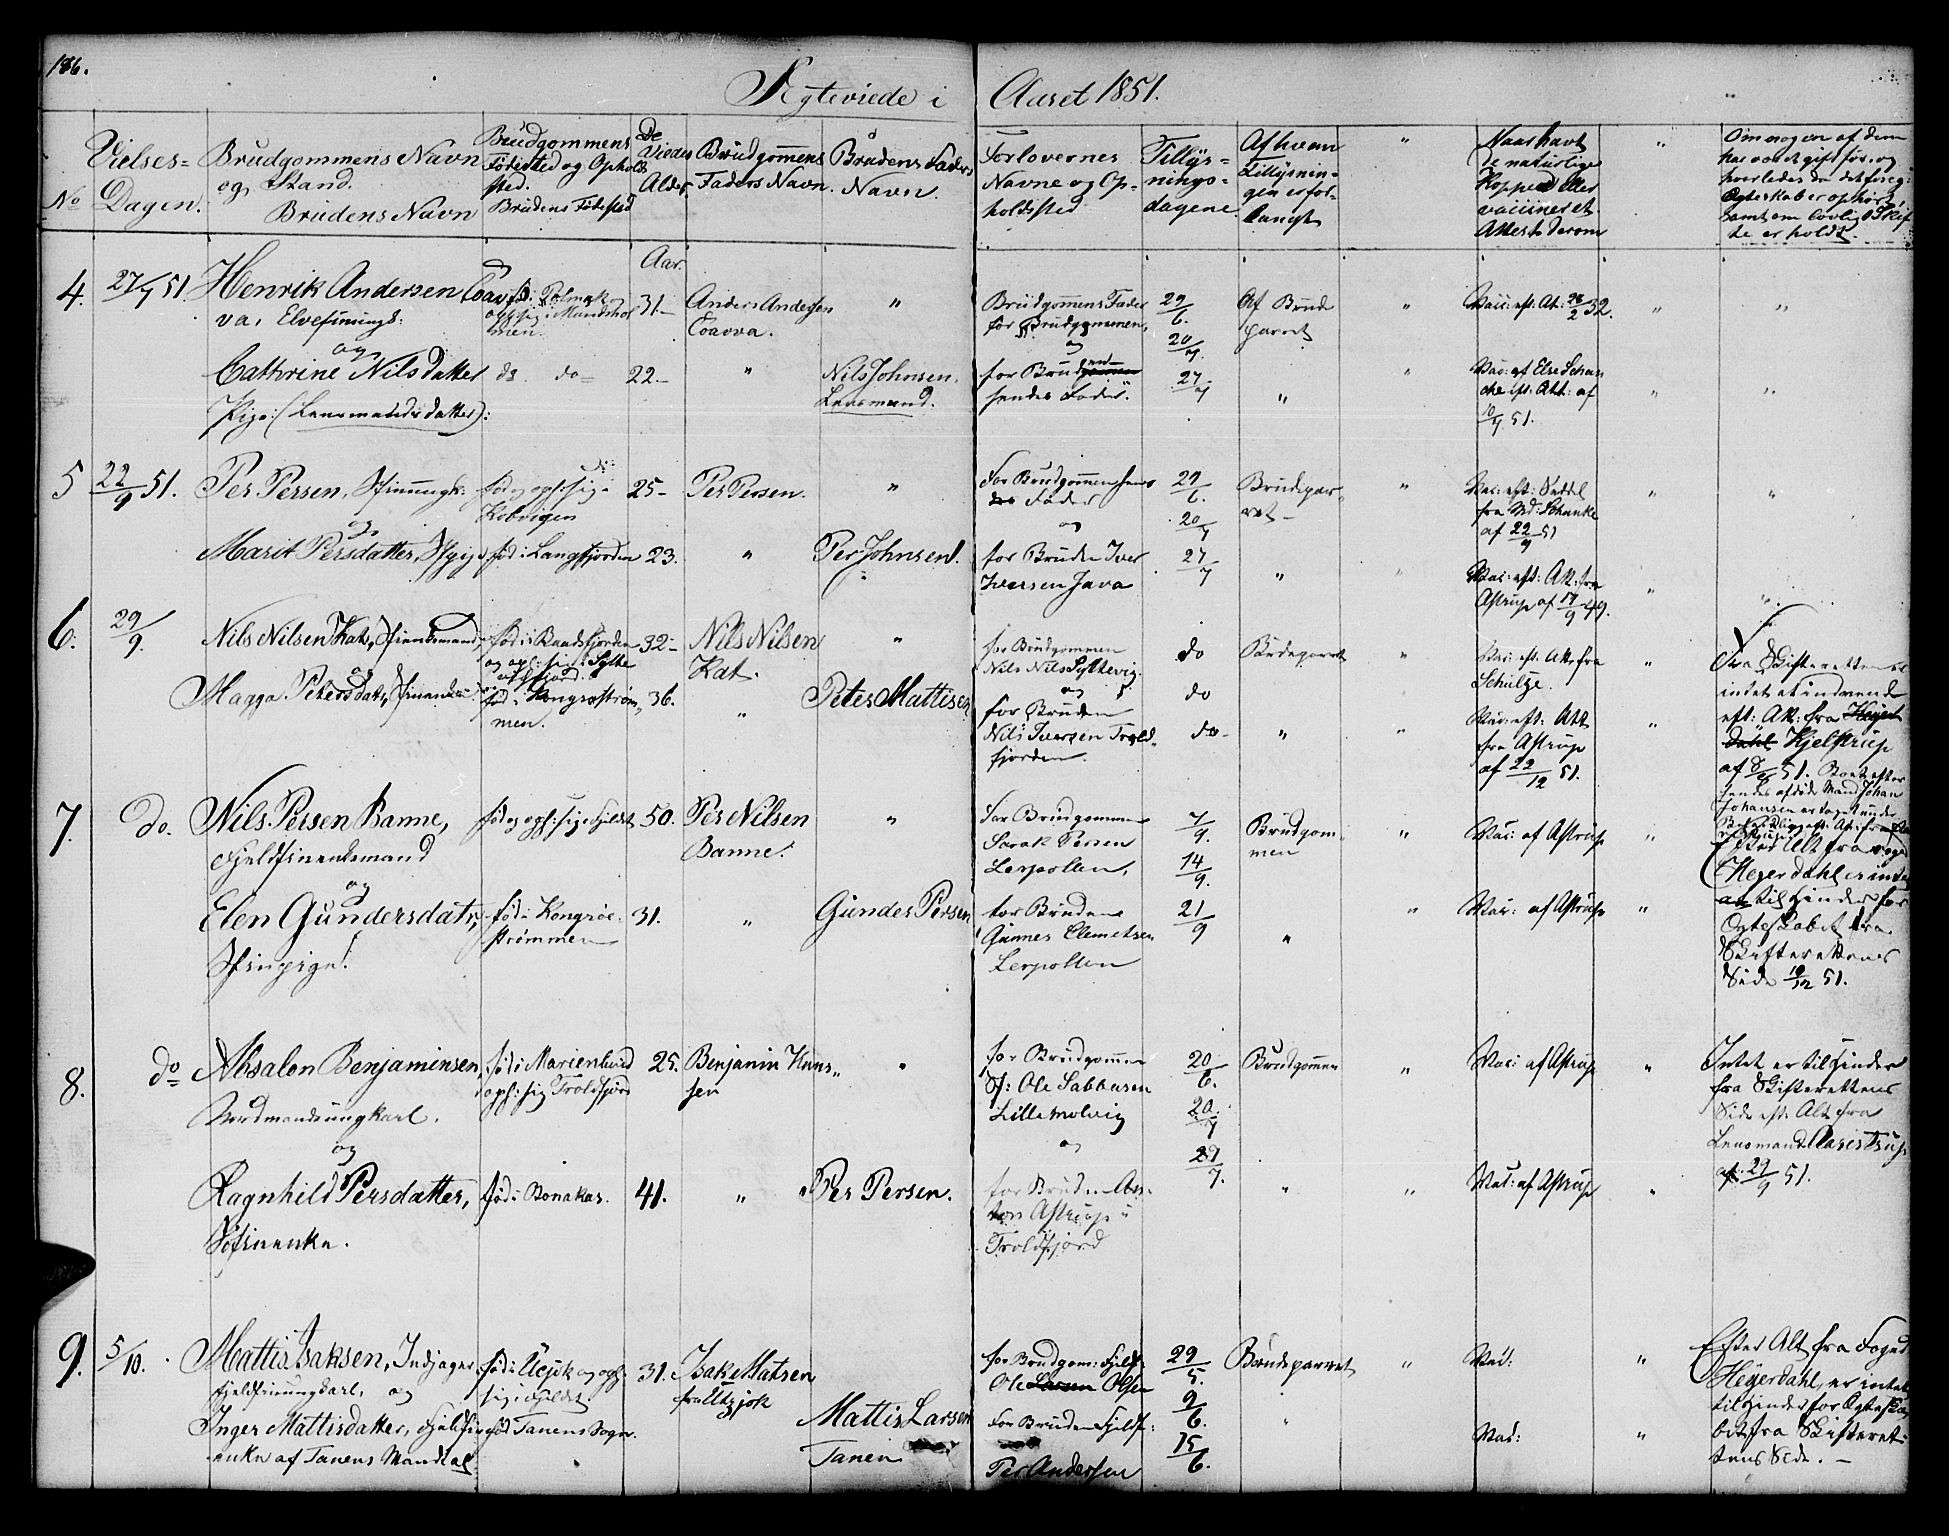 186.
Ægteviede i Aaret 1851.
No
Vielses-
Dagen.
Brudgommens Navn
og Stand.
Brudens Navn
Brudgommens
Fødested og Opholds
sted.
Brudens Fødested
De
Viedes
Alder
Brudgommens
Faders Navn.
Brudens Faders
Navn.
Forlovernes
Navne og Op-
holdsted
Tillys-
nings-
dagene.
Af hvem
Tillysnin-
gen er for-
langt
"
Naar havt
de naturlige
Kopper eller
vaccineret.
Attest derom
"
Om nogen af dem
har været gift før, og
hvorledes da det foreg:
Ægteskab er ophørt,
samt om lovligt Skif
te er holdt.
4. 27/7 51 Henrik Andersen Coav
va, Elvefinungk:
og
Cathrine Nilsdatter
Pige (Lensmandsdatter):
født i Polmak
men.
do. do
Aar.
31.
22.
Anders Andersen
Coavva.
"
Nils Johnsen,
Lensmand.
Brudgommens Fader
for Brudgommen,
og
for Bruden
hendes Fader.
29/6.
20/7.
27/7
Af Brude
parret
"
Vacc: eft. At: 28/2 32.
Vac: af Else Schan
che eft: Att: af
10/7 51.
5 22/9 51. Per Persen, Sfinungk:
og
Marit Persdatter, Sfpige
fød og oph: sig i
Kobvigen
fød i Langfjorden
25-
23.
Per Persen.
"
Per Johnsen.
For Brudgommen hans
Fader
og
for Bruden Iver
Iversen Java
29/6.
20/7
27/7
Brudepar-
ret
"
Vac: eft: Seddel
fra Md: Schanke
af 22/9 51
Vac: eft: Att: fra
Astrup af 17/9 49.
6. 29/9. Nils Nilsen Kat, Sfinenkemand
og
Magga Petersdatr, Sfinenke
fød i Baadsfjorden
og oph: sig i Sylte
fjord.
fød i Kongrøstrøm
men.
32-
36.
Nils Nilsen
Kat.
"
Peter Mattisen
for Brudgommen
Nils Nils Syltevig
og
for Bruden
Nils Iversen Trold-
fjorden.
do
do
do
Brudeparret
"
Vac: eft. Att. fra
Schulze.
Vac: eft: Att
fra Astrup
af 22/12 51.
Fra Skifteretten er
intet at indvende
eft: Att: fra Heyer
dahl Kjelstrup
af 8/9 51. Boet efter
hendes afdøde Mand Johan
Johansen er taget under
7. do. Nils Persen Banne,
Fjeldfinenkemand
og
Elen Gundersdatr,
Sfinpige.
fød og oph: sig i Fjeldet
fød i Kongrøe-
strømmen
50.
31.
Per Nilsen
Banne.
"
Gunder Persen
For Brudgommen
Sarak Persen
Lerpollen,
for Bruden
Gunnes Clemetsen
Lerpollen
7/9.
14/9.
21/9
Brudgom-
men
"
Vac: af Astrup
Vac: af Astrup
Efter Att fra Foged
Heyerdahl er intet
til Hinder for
Ægteskabet fra
Skifterettens
Side 10/12 51.
8. do Absalon Benjaminsen,
Nordmandsungkarl.
og
Ragnhild Persdatter,
Søfinenke.
fød i Marienlund
oph: sig Troldfjord
fød i Bonakas.
25.
41.
Benjamin Hans-
sen
"
Per Persen.
for Brudgommen
Sf: Ole Sabbasen
Lille Molvig
og
for Bruden An-
ton Astrup i
Troldfjord
20/6.
20/7
29/7.
Brudgommen
"
Vac: af Astrup
Vac: af Astrup
Intet er til Hinder
fra Skifterettens
Side eft: Att fra
Lensmand Aarestrup
af 29/9 51.
9. 5/10. Mattis Isaksen, Indjager
Fjeldfinungkarl, og
Inger Mattisdatter, Fjeldfin
enke af Tanens Mandtal
fød i Ucjok og oph:
sig i Fjeldet.
fød Tanens Sogn.
31.
Isak Matsen
fra Utzjok
Mattis Larsen
Tanen
for Brudgom: Fjeldf:
Ole Larsen Olsen
For Bruden Fjeldf:
Per Andersen
29/5.
9/6.
15/6.
Brudeparret
"
Vac:
Vac:
Efter Att fra Foged
Heyerdahl, er intet
til Hinder for Ægteska
bet fra Skifteret-
tens Side.